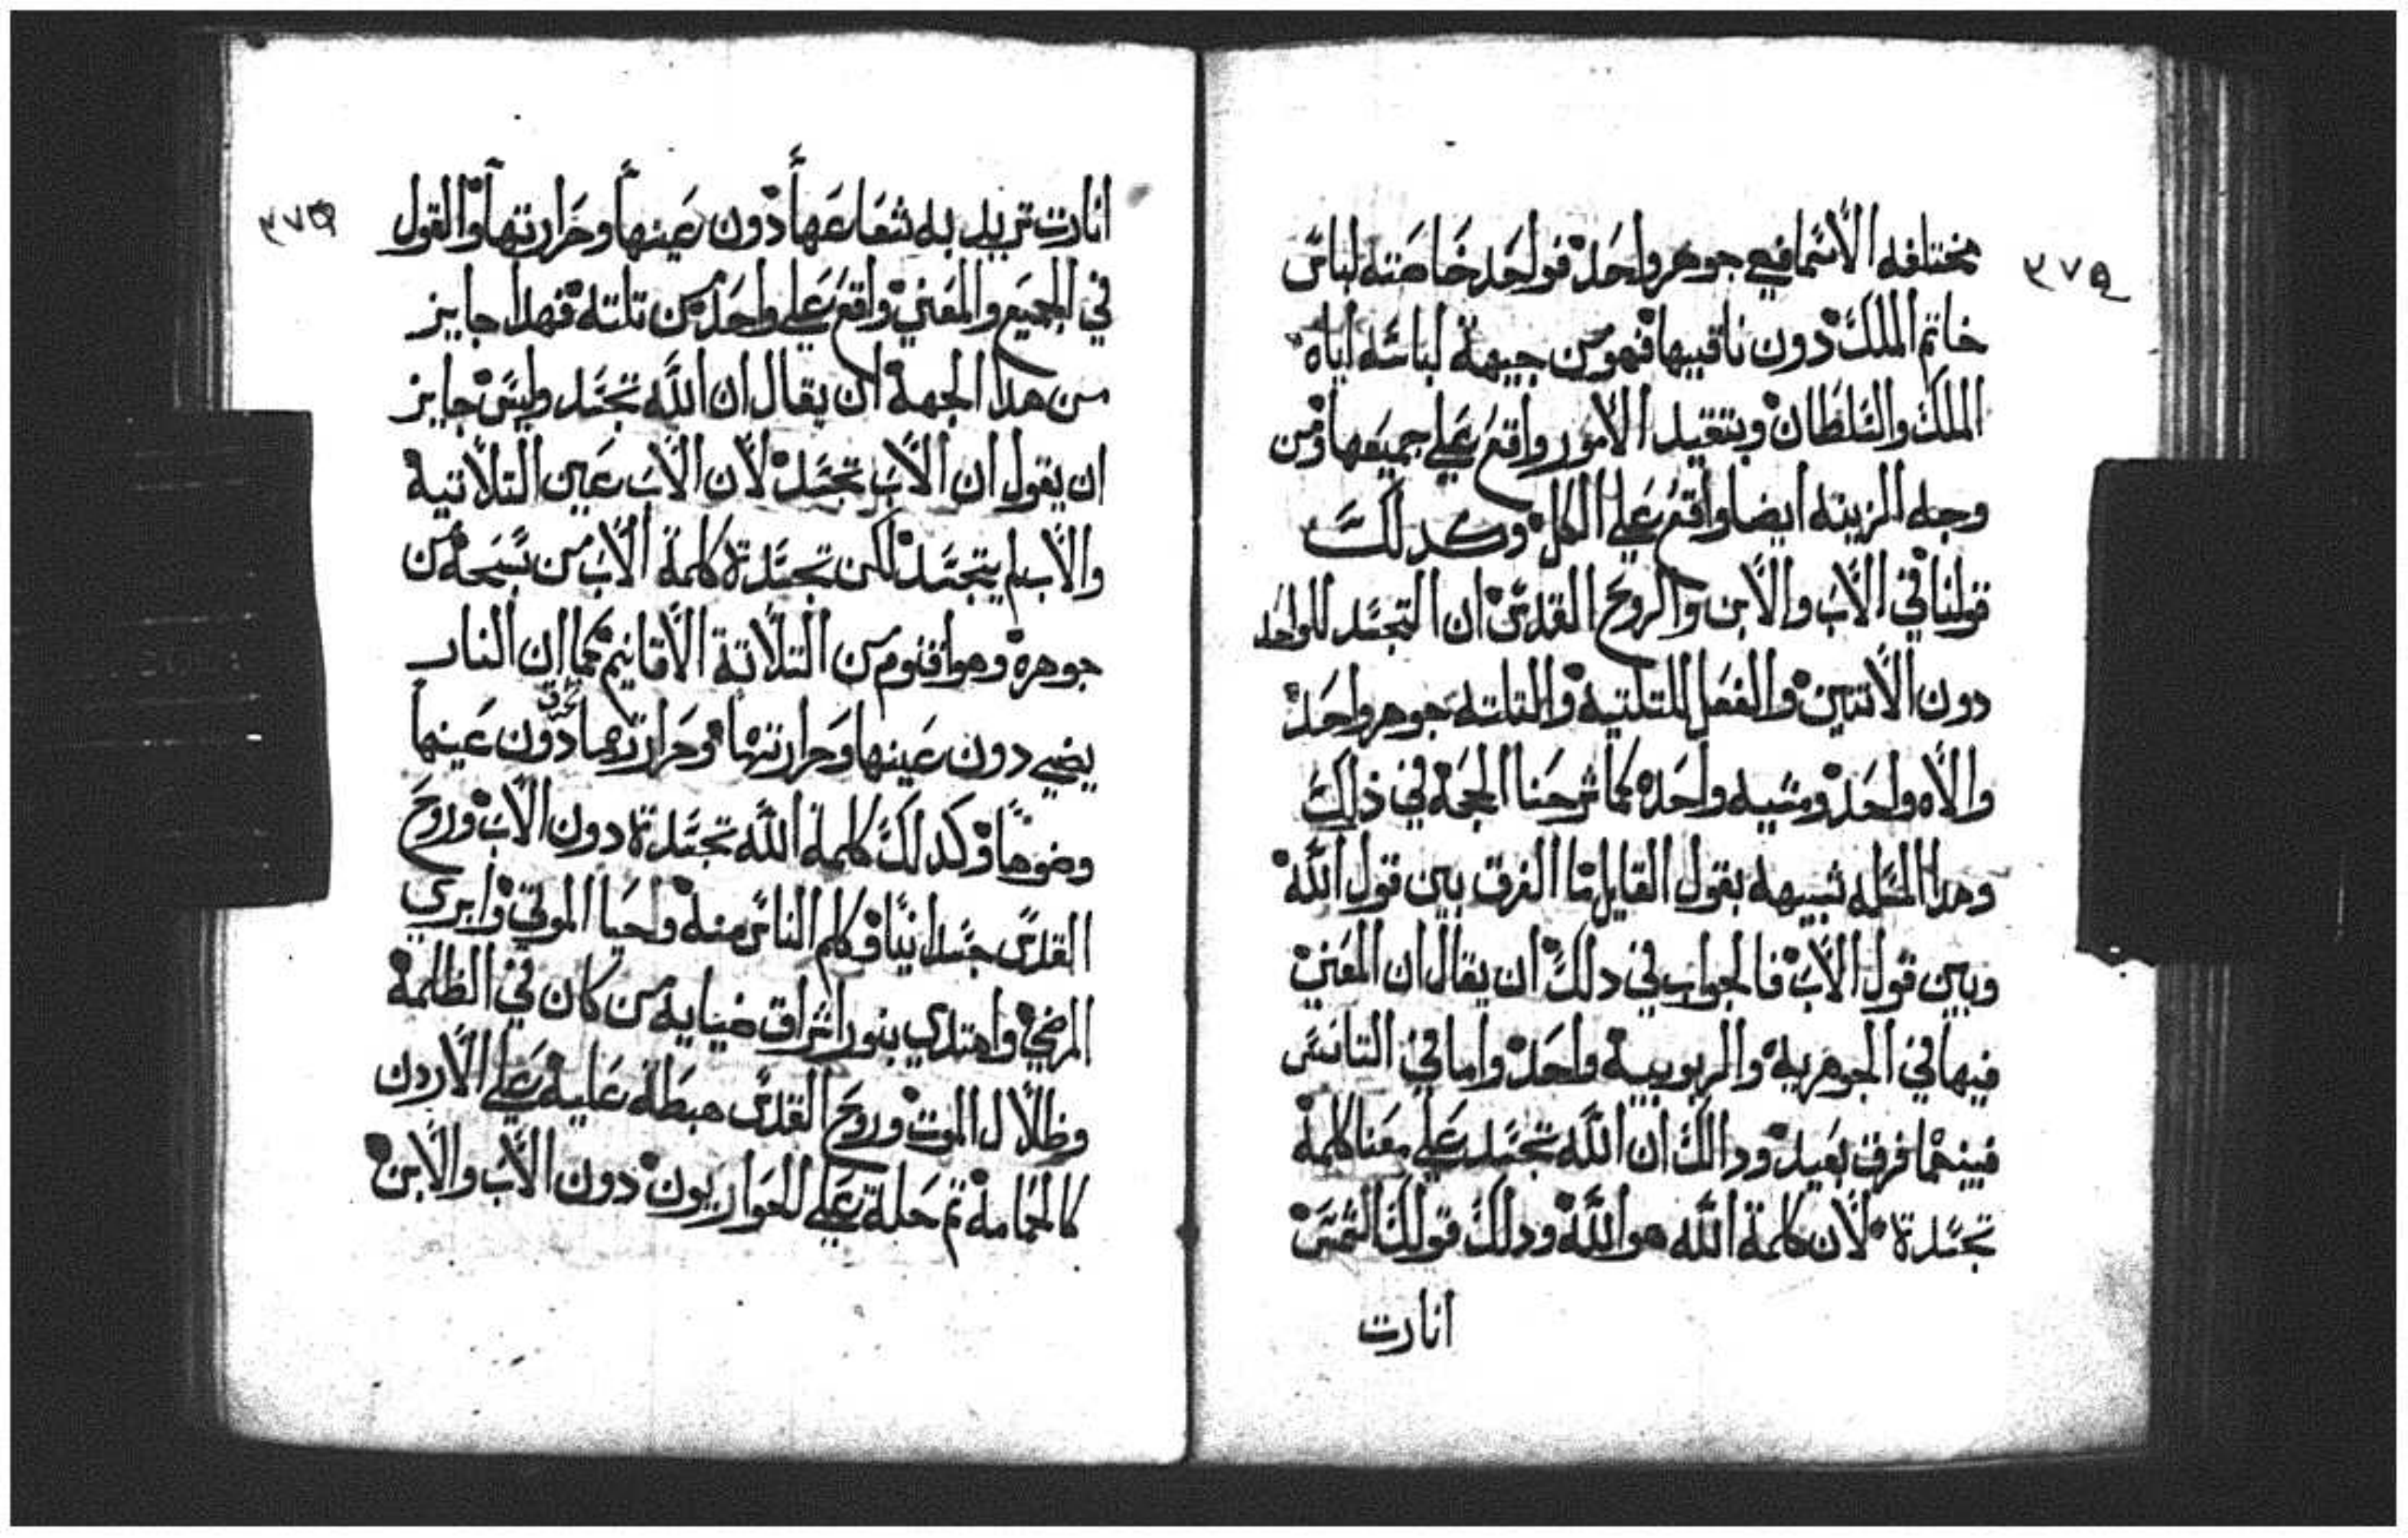 ٣٧٥
مختلفه الاسما فهي جوهر واحد فواحد خاصته لباس
خاتم الملك دون ناقبيها فهو من جيهة لباسه اياه
الملك والسلطان وبتقيد الامور واقع على جميعها ومن
وجه الزينه ايضا واقع على الكل وكدلك
قولنا في الاب والابن والروح القدس ان التجسد للواحد
دون الاتنين والفعل للتلتية والتلته جوهر واحد
والاه واحد ومشيه واحده كما شرحنا الحجه في ذلك
وهدا المسله شبيهه بقول القايل ما الفرق بين قول الله
وبين قول الاب فالجواب في دلك ان يقال ان المعني
فيها في الجوهرية والربوبية واحد واما في التانس
فبينهما فرق بعيد ودالك ان الله تجسد على معنا كلمة
تجسدة لان كلمة الله هو الله ودلك قولك الشمس
انارت
٣٧٥
انارت تريد به شعاعها دون عينها وحرارتها والقول
في الجميع والمعني واقع على واحد من تلته فهدا جايز
من هدا الجهة ان يقال ان الله تجسد وليس جايز
ان يقول ان الاب تجسد لان الاب عين التلاتية
والاب لم يتجسد لكن تجسدة كلمة الاب من نسحه من
جوهرة وهو اقنوم من التلاتة الاقانيم كما ان النار
يضي دون عينها وحرارتها وحرارتها تحرق دون عينها
وضوها وكدلك كلمة الله تجسدة دون الاب وروح
القدس جسدانيا وكلم الناس منه واحيا الموتي وابري
المرضي واهتدي بنور اشراق ضيايه من كان في الظلمة
وظلال الموت وروح القدس هبطة عليه على الاردن
كالحمامة تم حلة على الحواريون دون الاب والابن